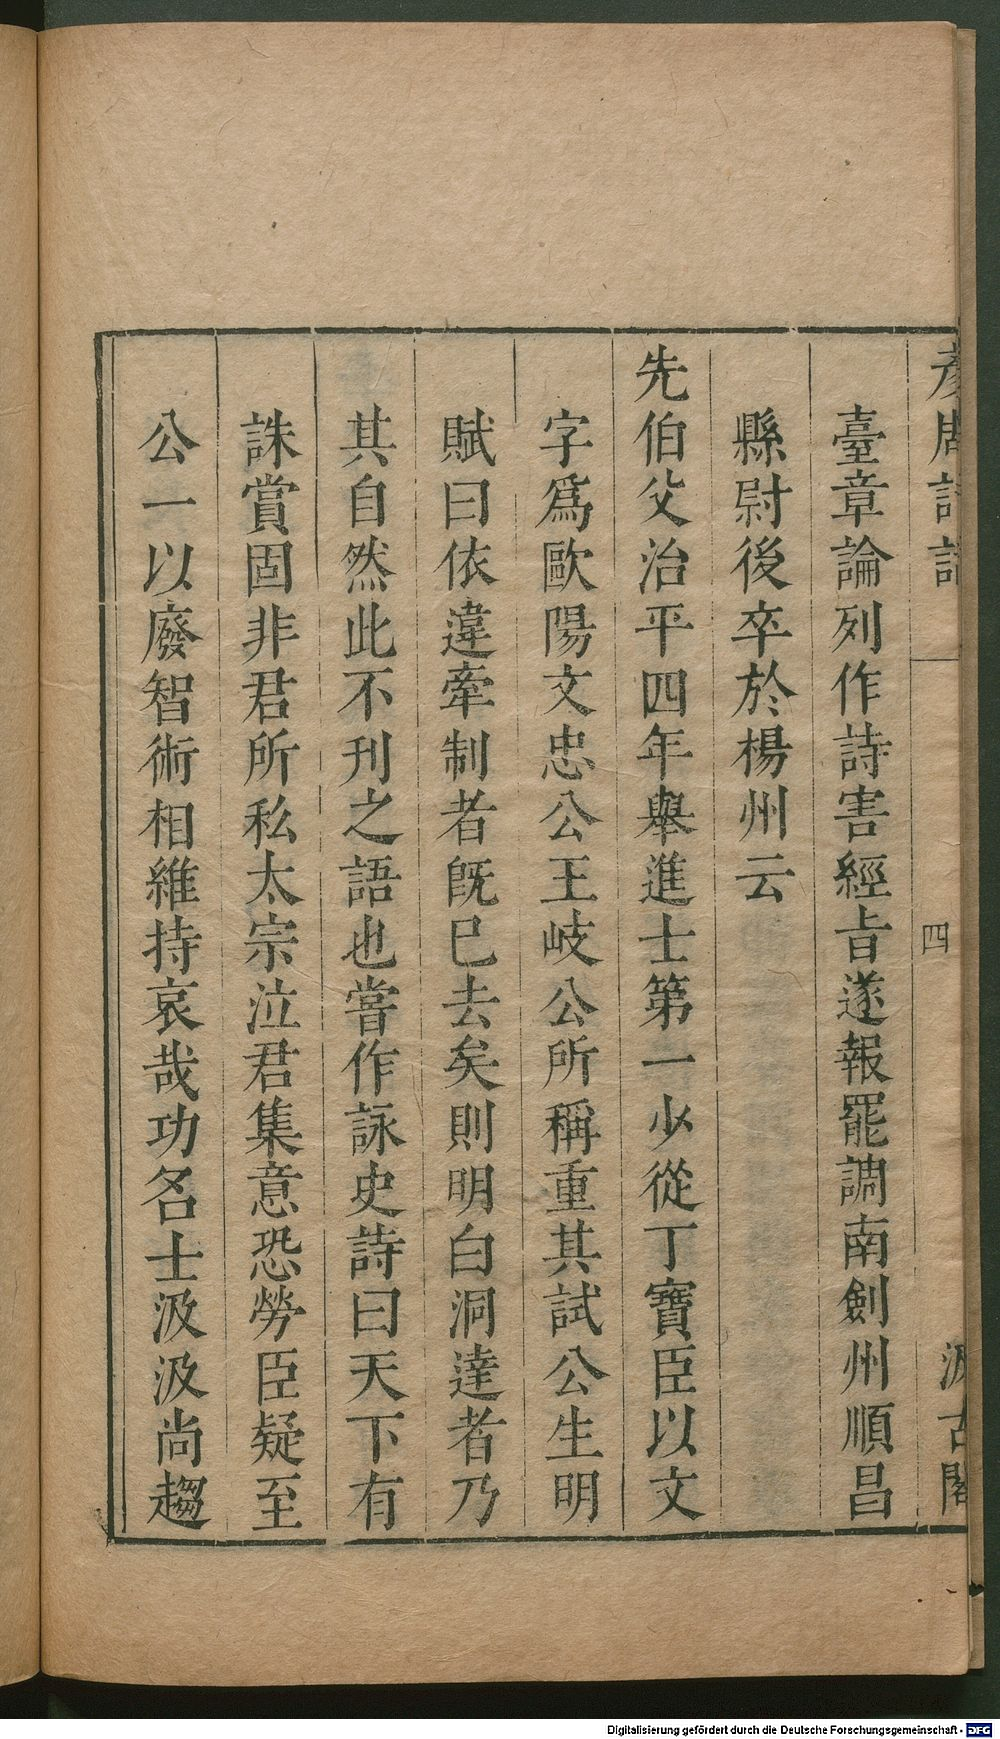 彥周詩話
四
汲古閣
臺章論列作詩害經旨遂報罷調南劍州順昌
縣尉後卒於楊州云
先伯父治平四年舉進士第一少從丁寶臣以文
字爲歐陽文忠公王岐公所稱重其試公生明
賦曰依違牽制者旣巳去矣則明白洞達者乃
其自然此不刊之語也嘗作詠史詩曰天下有
誅賞固非君所私太宗泣君集意恐勞臣疑至
公一以廢智術相維持哀哉功名士汲汲尚趨
Digitalisierung gefördert durch die Deutsche Forschungsgemeinschaft - DFG